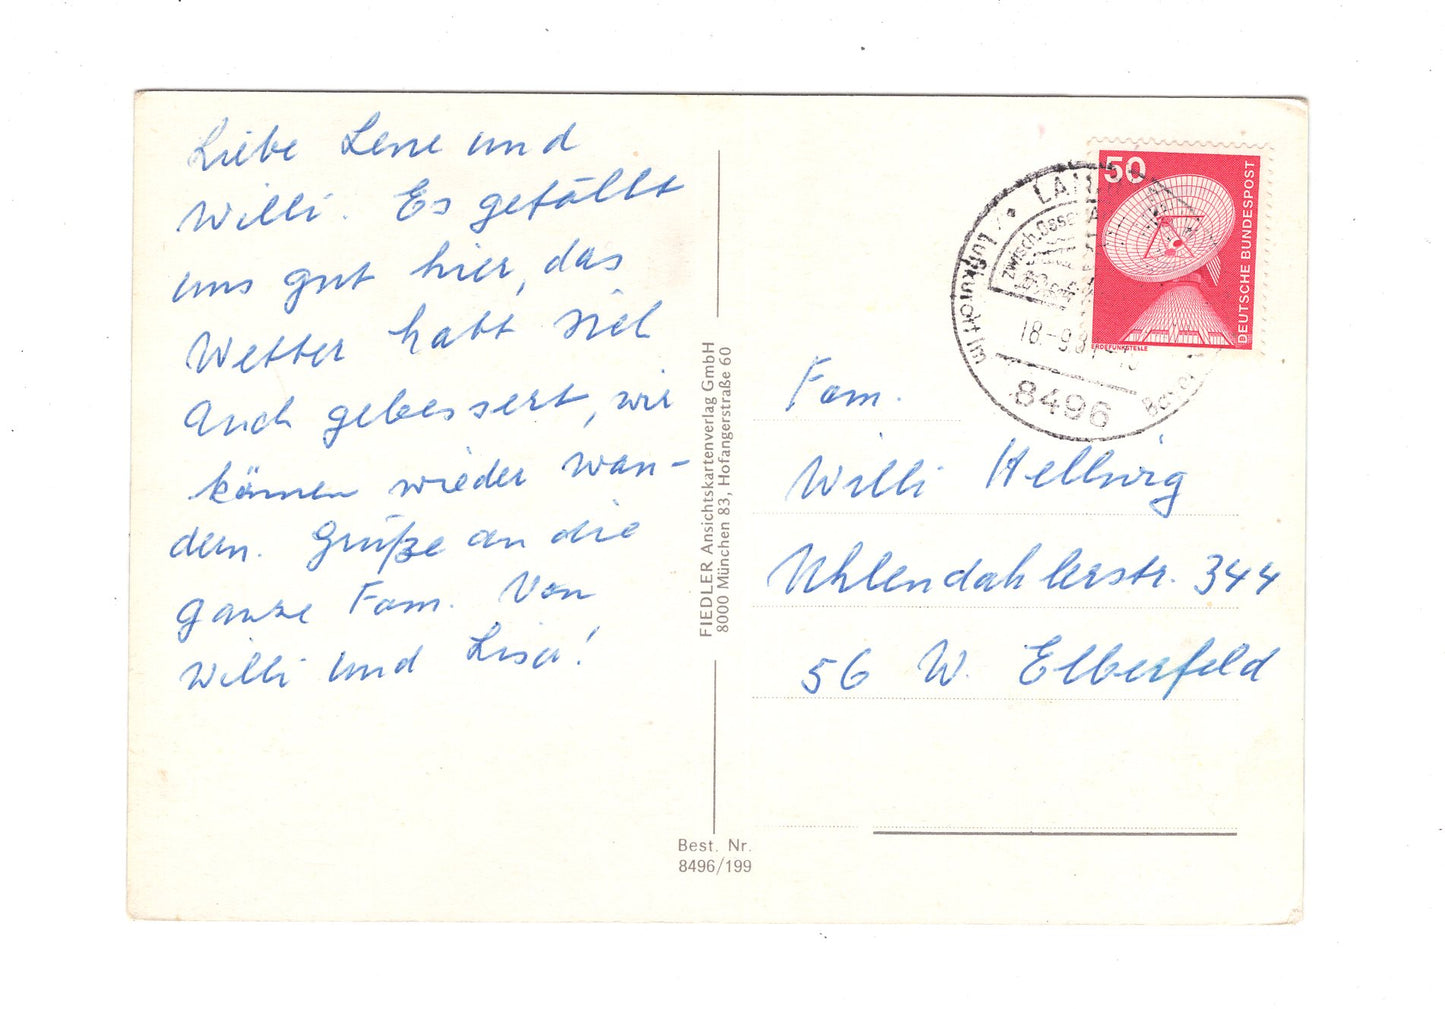 Liebe Lene und
Willi. Es gefällt
uns gut hier, das
Wetter habt
Auch gebessert, wir
können wieder wan-
dern. Grüße an die
ganze Fam. Von
Willi und Lisa!
FIEDLER Ansichtskartenverlag GmbH
8000 München 83, Hofangerstraße 60
Best. Nr.
8496/199
50
DEUTSCHE BUNDESPOST
ERDEFUNKSTELLE
Luftkurort im
18.-9.81
8496
Fam.
Willi Hellwig
Uhlendahlerstr. 344
56 W. Elberfeld